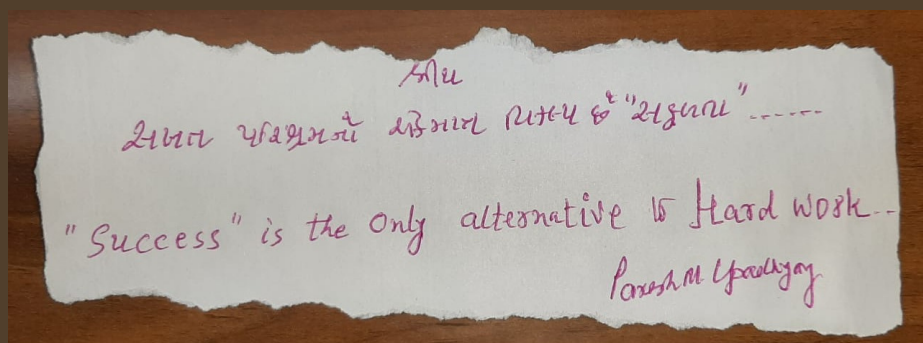 સખત પરિશ્રમનો એકમાત્ર વિકલ્પ છે "સફળતા"......
"Success" is the only alternative to Hard work..
Paresh M Upadhyay